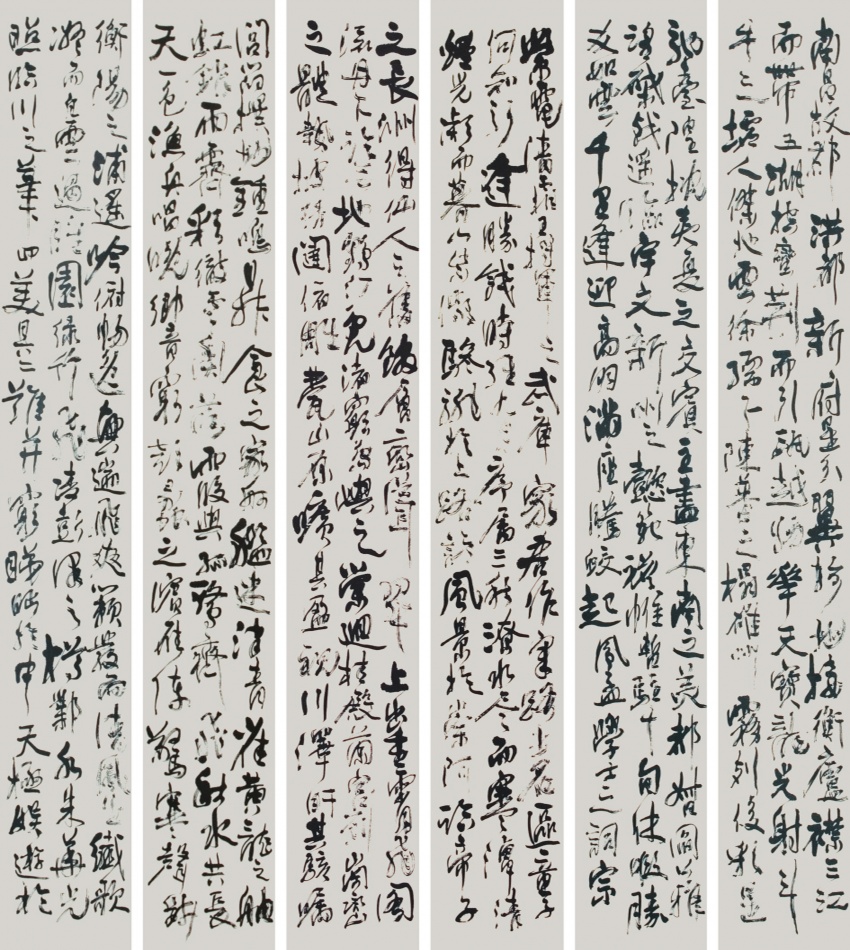 南昌故郡洪都新府星分翼軫地接衡廬襟三江
而帶五湖控蠻荊而引甌越物華天寶龍光射斗
牛之墟人傑地靈徐孺下陳蕃之榻雄州霧列俊彩星
馳臺隍枕夷夏之交賓主盡東南之美都督閻公雅
望棨戟遙臨宇文新州之懿範襜帷暫駐十旬休暇勝
友如雲千里逢迎高朋滿座騰蛟起鳳孟學士之詞宗
紫電清霜王將軍之武庫家君作宰路出名區童子
何知躬逢勝餞時維九月序屬三秋潦水尽而寒潭清
煙光凝而暮山紫儼驂騑於上路訪風景於崇阿臨帝子
之長洲得仙人之舊館層巒聳翠上出重霄飛閣
流丹下臨無地鶴汀鳧渚窮島嶼之縈迴桂殿蘭宮列崗巒
之體勢披繡闥俯雕甍山原曠其盈視川澤盱其駭矚
閭閻撲地鐘鳴鼎食之家舸艦迷津青雀黃龍之舳
虹銷雨霽彩徹雲衢落霞與孤鶩齊飛秋水共長
天一色漁舟唱晚響窮彭蠡之濱雁陣驚寒聲斷
衡陽之浦遙吟俯暢逸興遄飛爽籟發而清風生纖歌
凝而白雲遏睢園綠竹氣凌彭澤之樽鄴水朱華光
照臨川之筆四美具二難并窮睇眄於中天極娛遊於